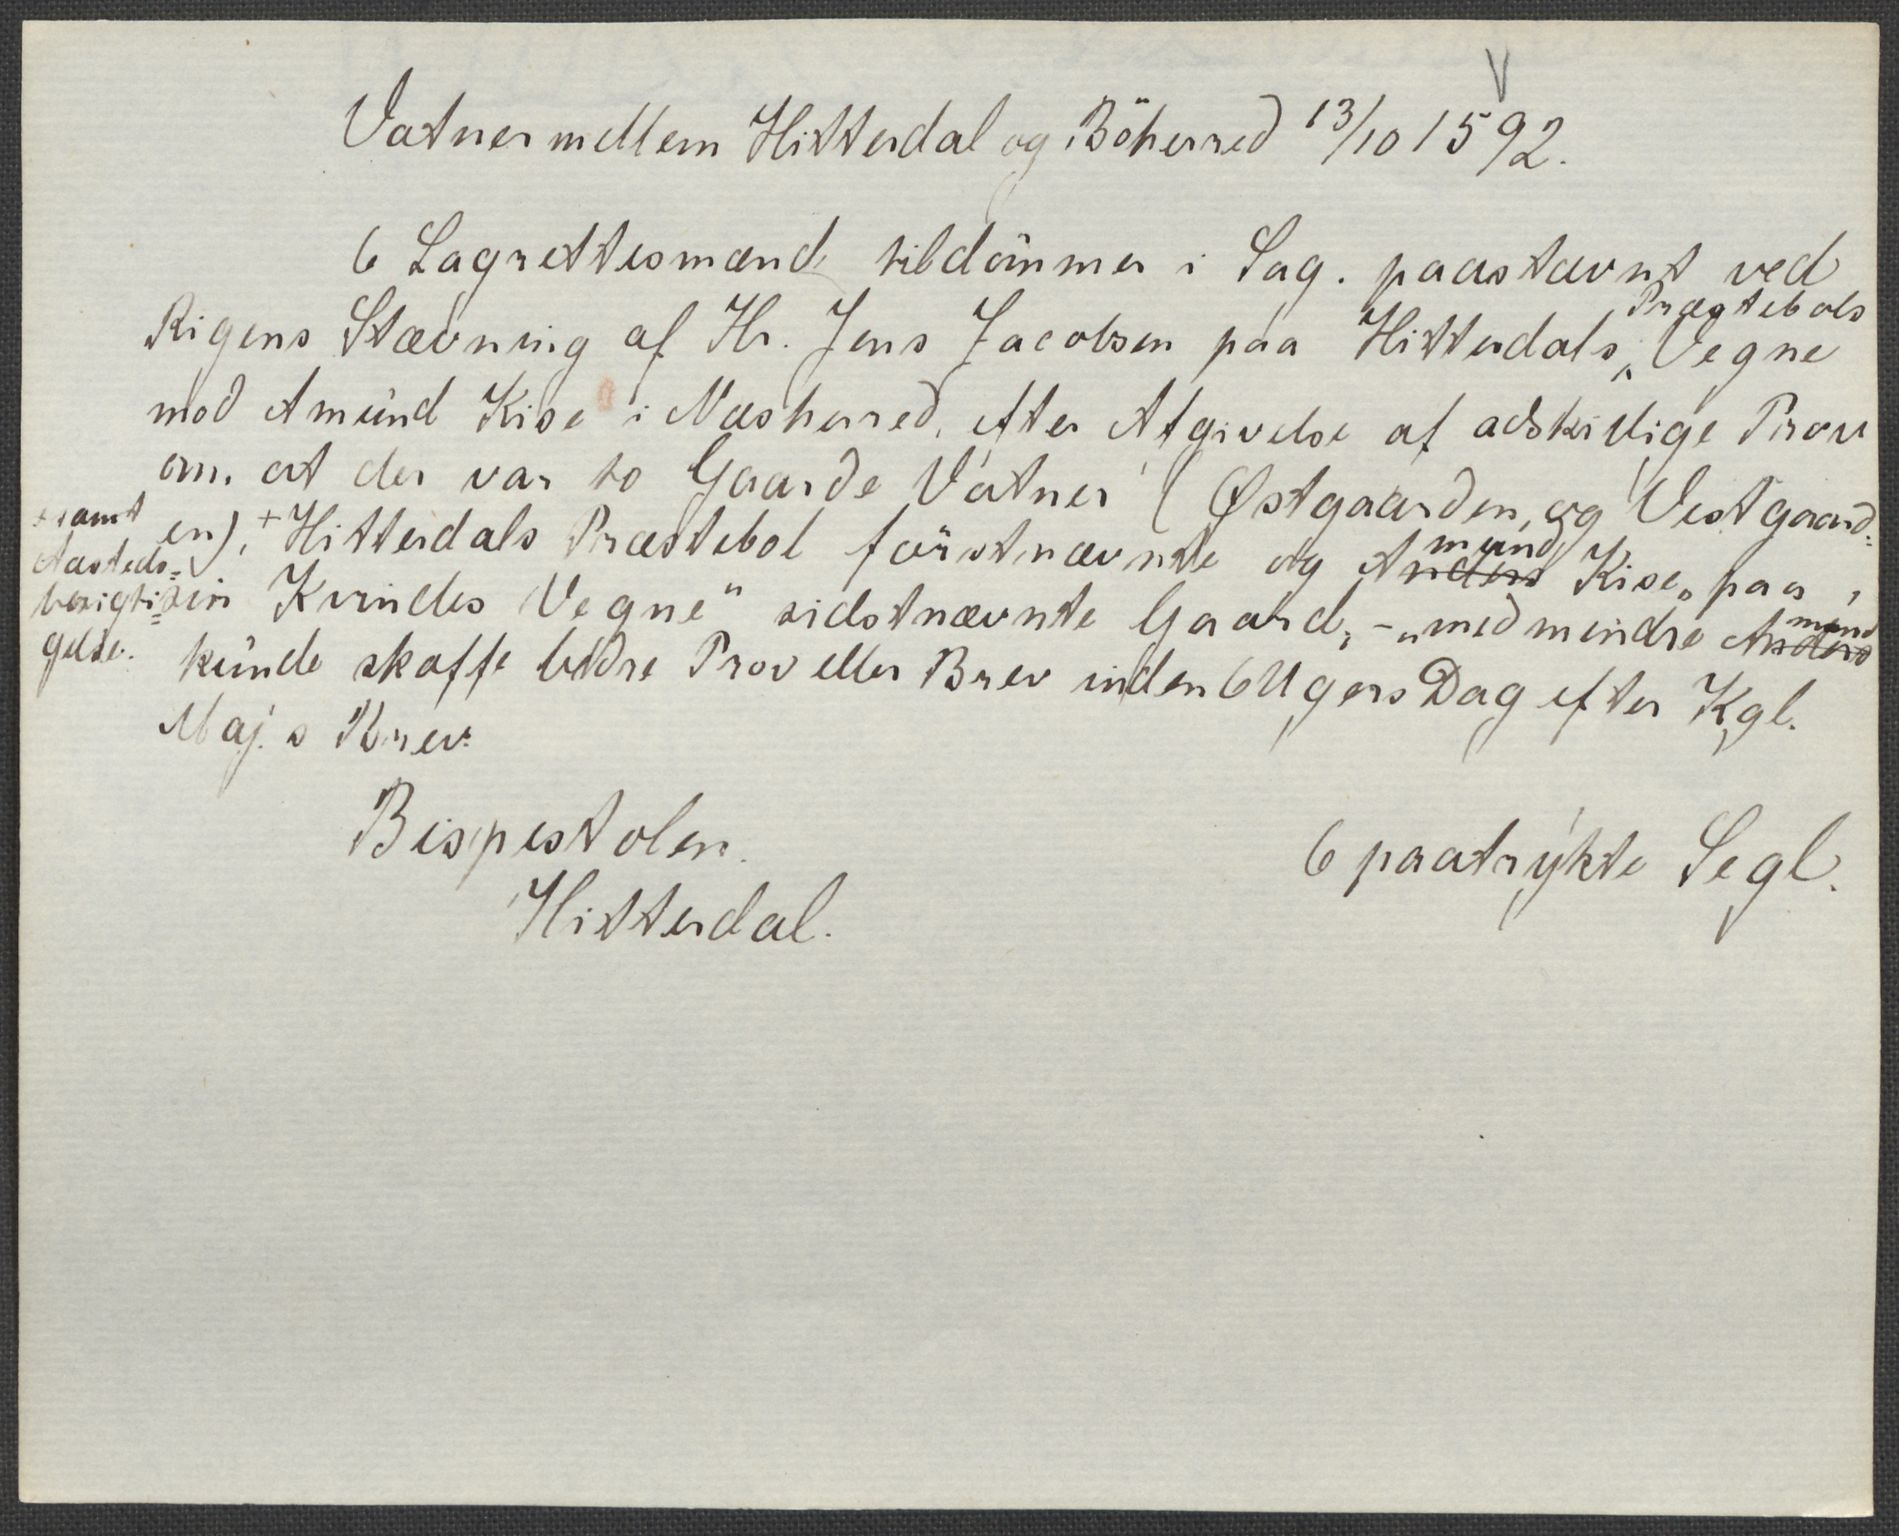 V
Vatner mellem Hitterdal og Böherred 13/10 1592.
6 Lagrettesmænd tildömmer i Sag. paastævnt ved
Rigens Stævning af Hr. Jens Jacobsen paa Hitterdals Præstebols Vegne
mod Amund Kise i Næsherred, efter Afgivelse af adskillige Prov
om. at der var to Gaarde Vatner (Østgaarden, og Vestgaard=
en), + Hitterdals Præstebol förstnævnte og Anders mund Kise „paa
sin Kvindes Vegne" sidstnævnte Gaard, - „med mindre Anders mund
kunde skaffe bedre Prov eller Brev inden 6 Ugers Dag efter Kgl.
Maj.s Brev.
+ samt
Aasteds=
besigti=
gelse.
Bispestolen.
Hitterdal.
6 paatrykte Segl.